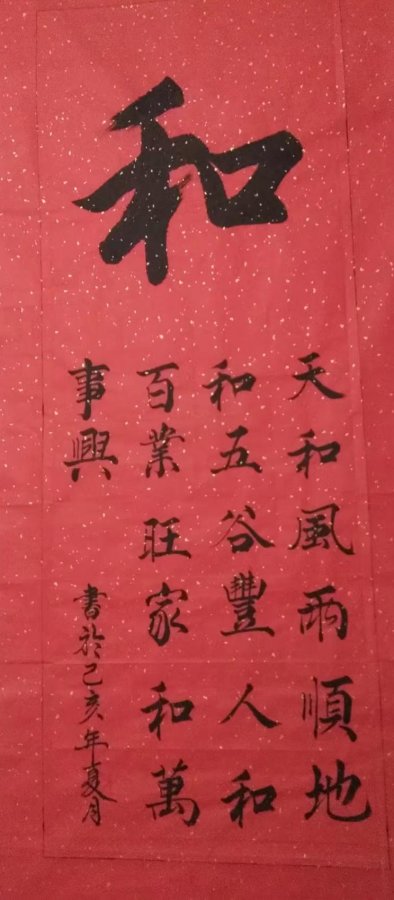 和
天和風雨順地
和五谷豐人和
百業旺家和萬
事興
書於己亥年夏月